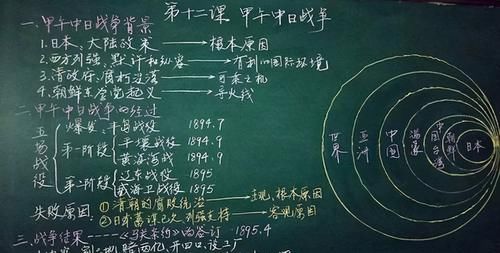 第十二课 甲午中日战争
一、甲午中日战争背景
1.日本、大陆政策 → 根本原因
2.西方列强、默许和纵容 → 有利的国际环境
3.清政府、腐朽没落 → 可乘之机
4.朝鲜东学党起义 → 导火线
二、甲午中日战争的经过
五场战役
爆发、丰岛战役 1894.7
第一阶段 平壤战役 1894.9
黄海海战 1894.9
第二阶段 辽东战役 1895
威海卫战役 1895
失败原因 ①清朝的腐败统治 → 主观、根本原因
②日本蓄谋已久,列强支持 → 客观原因
三、战争结果 《马关条约》的签订 1895.4
割 赔两亿、开四口、设工厂
世界
亚洲
中国
满蒙
中国台湾
朝鲜
日本